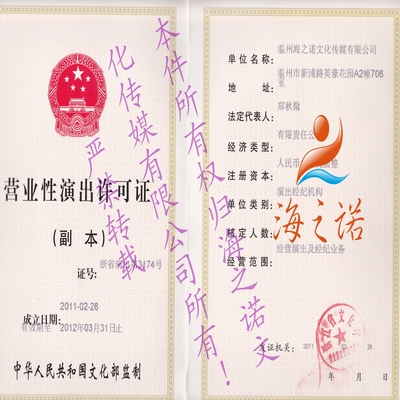 营业性演出许可证
(副 本)
证号:
浙省
3174号
2011-02-28
成立日期:
有效期至 2012年03月31日止
中华人民共和国文化部监制
单位名称: 温州海之诺文化传媒有限公司
地 址: 温州市新浦路英豪花园A2幢706
室
法定代表人: 郑秋微
经济类型: 有限责任公
注册资本: 人民币
单位类别: 演出经纪机构
核定人数:
经营范围: 经营演出及经纪业务
发证机关: 2011 02 28
年 月 日
海之诺
本件所有权归海之诺文
化传媒有限公司所有!
严禁转载